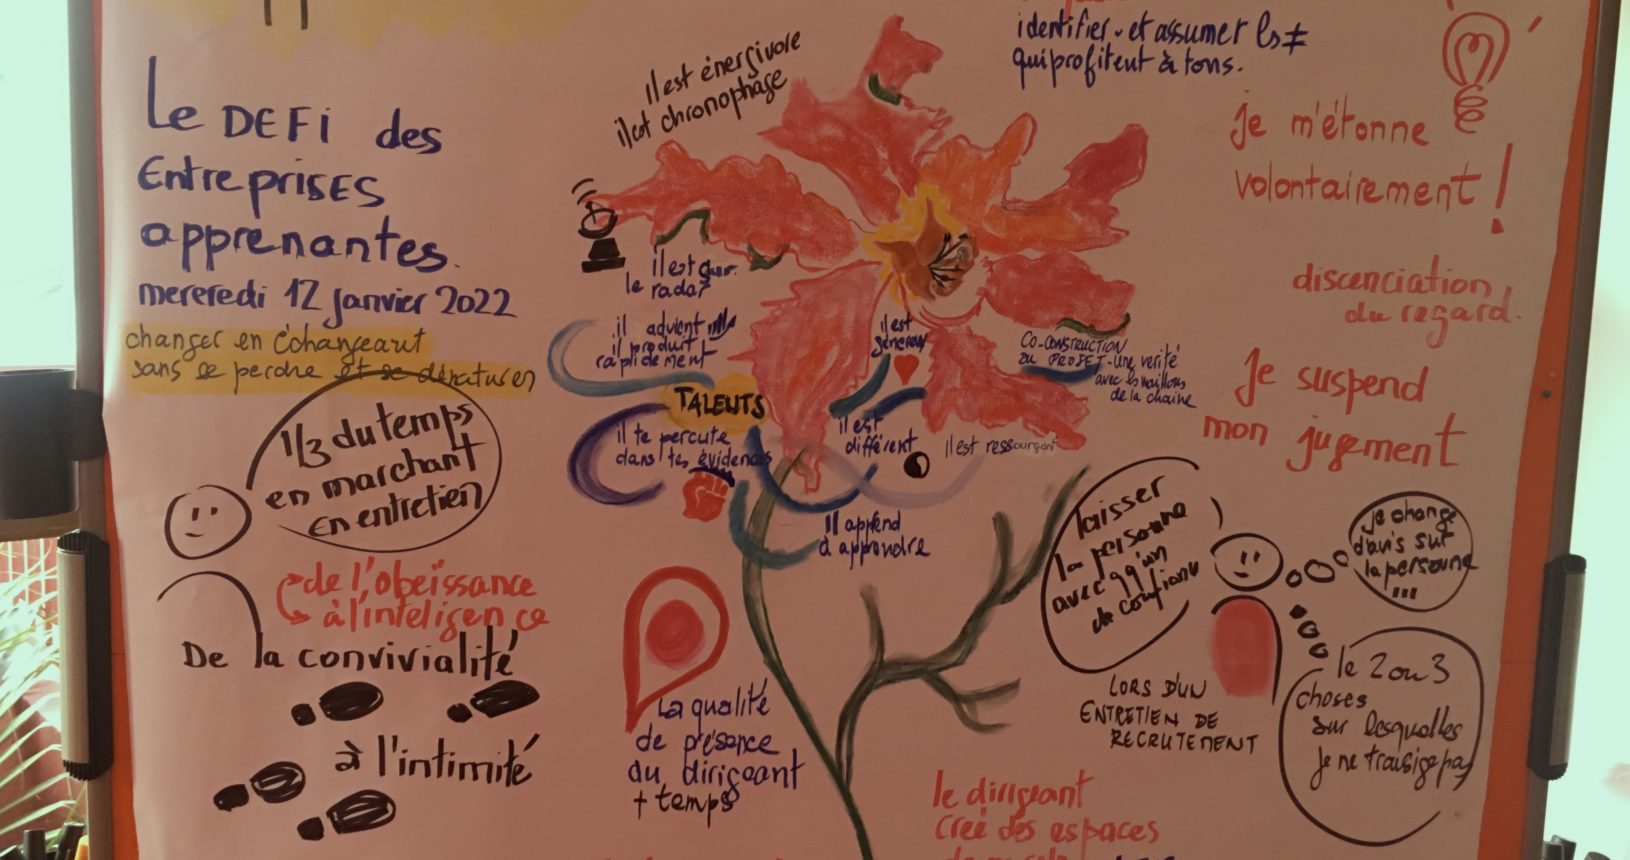 Le DEFi des
EntreprisES
apprenantes.
mercredi 12 janvier 2022
changer en échangeant
sans se perdre et se dénaturer
1/3 du temps
en marchant
en entretien
de l'obeïssance
à l'inteligence
De la convivialité
à l'intimité
il est énergivore
il est chronophage
il est
le radar
il advient
il produit
rapidement
TALENTS
il te percute
dans tes évidences
il est
généreux
il est
différent
il est ressourçant
Il apprend
à apprendre
CO-CONSTRUCTION
DU PROJET - une verité
avec les maillons
de la chaine
La qualité
de présence
du dirigeant
+ temps
identifier et assumer les ≠
qui profitent à tous.
je m'étonne
volontairement !
du regard.
Je suspend
mon jugement
laisser
la personne
avec 99 in
de confiance
LORS D'UN
ENTRETIEN DE
RECRUTEMENT
je change
d'avis sur
la personne
...
le 2 ou 3
choses
sur lesquelles
je ne transige pas
le dirigeant
crée des espaces